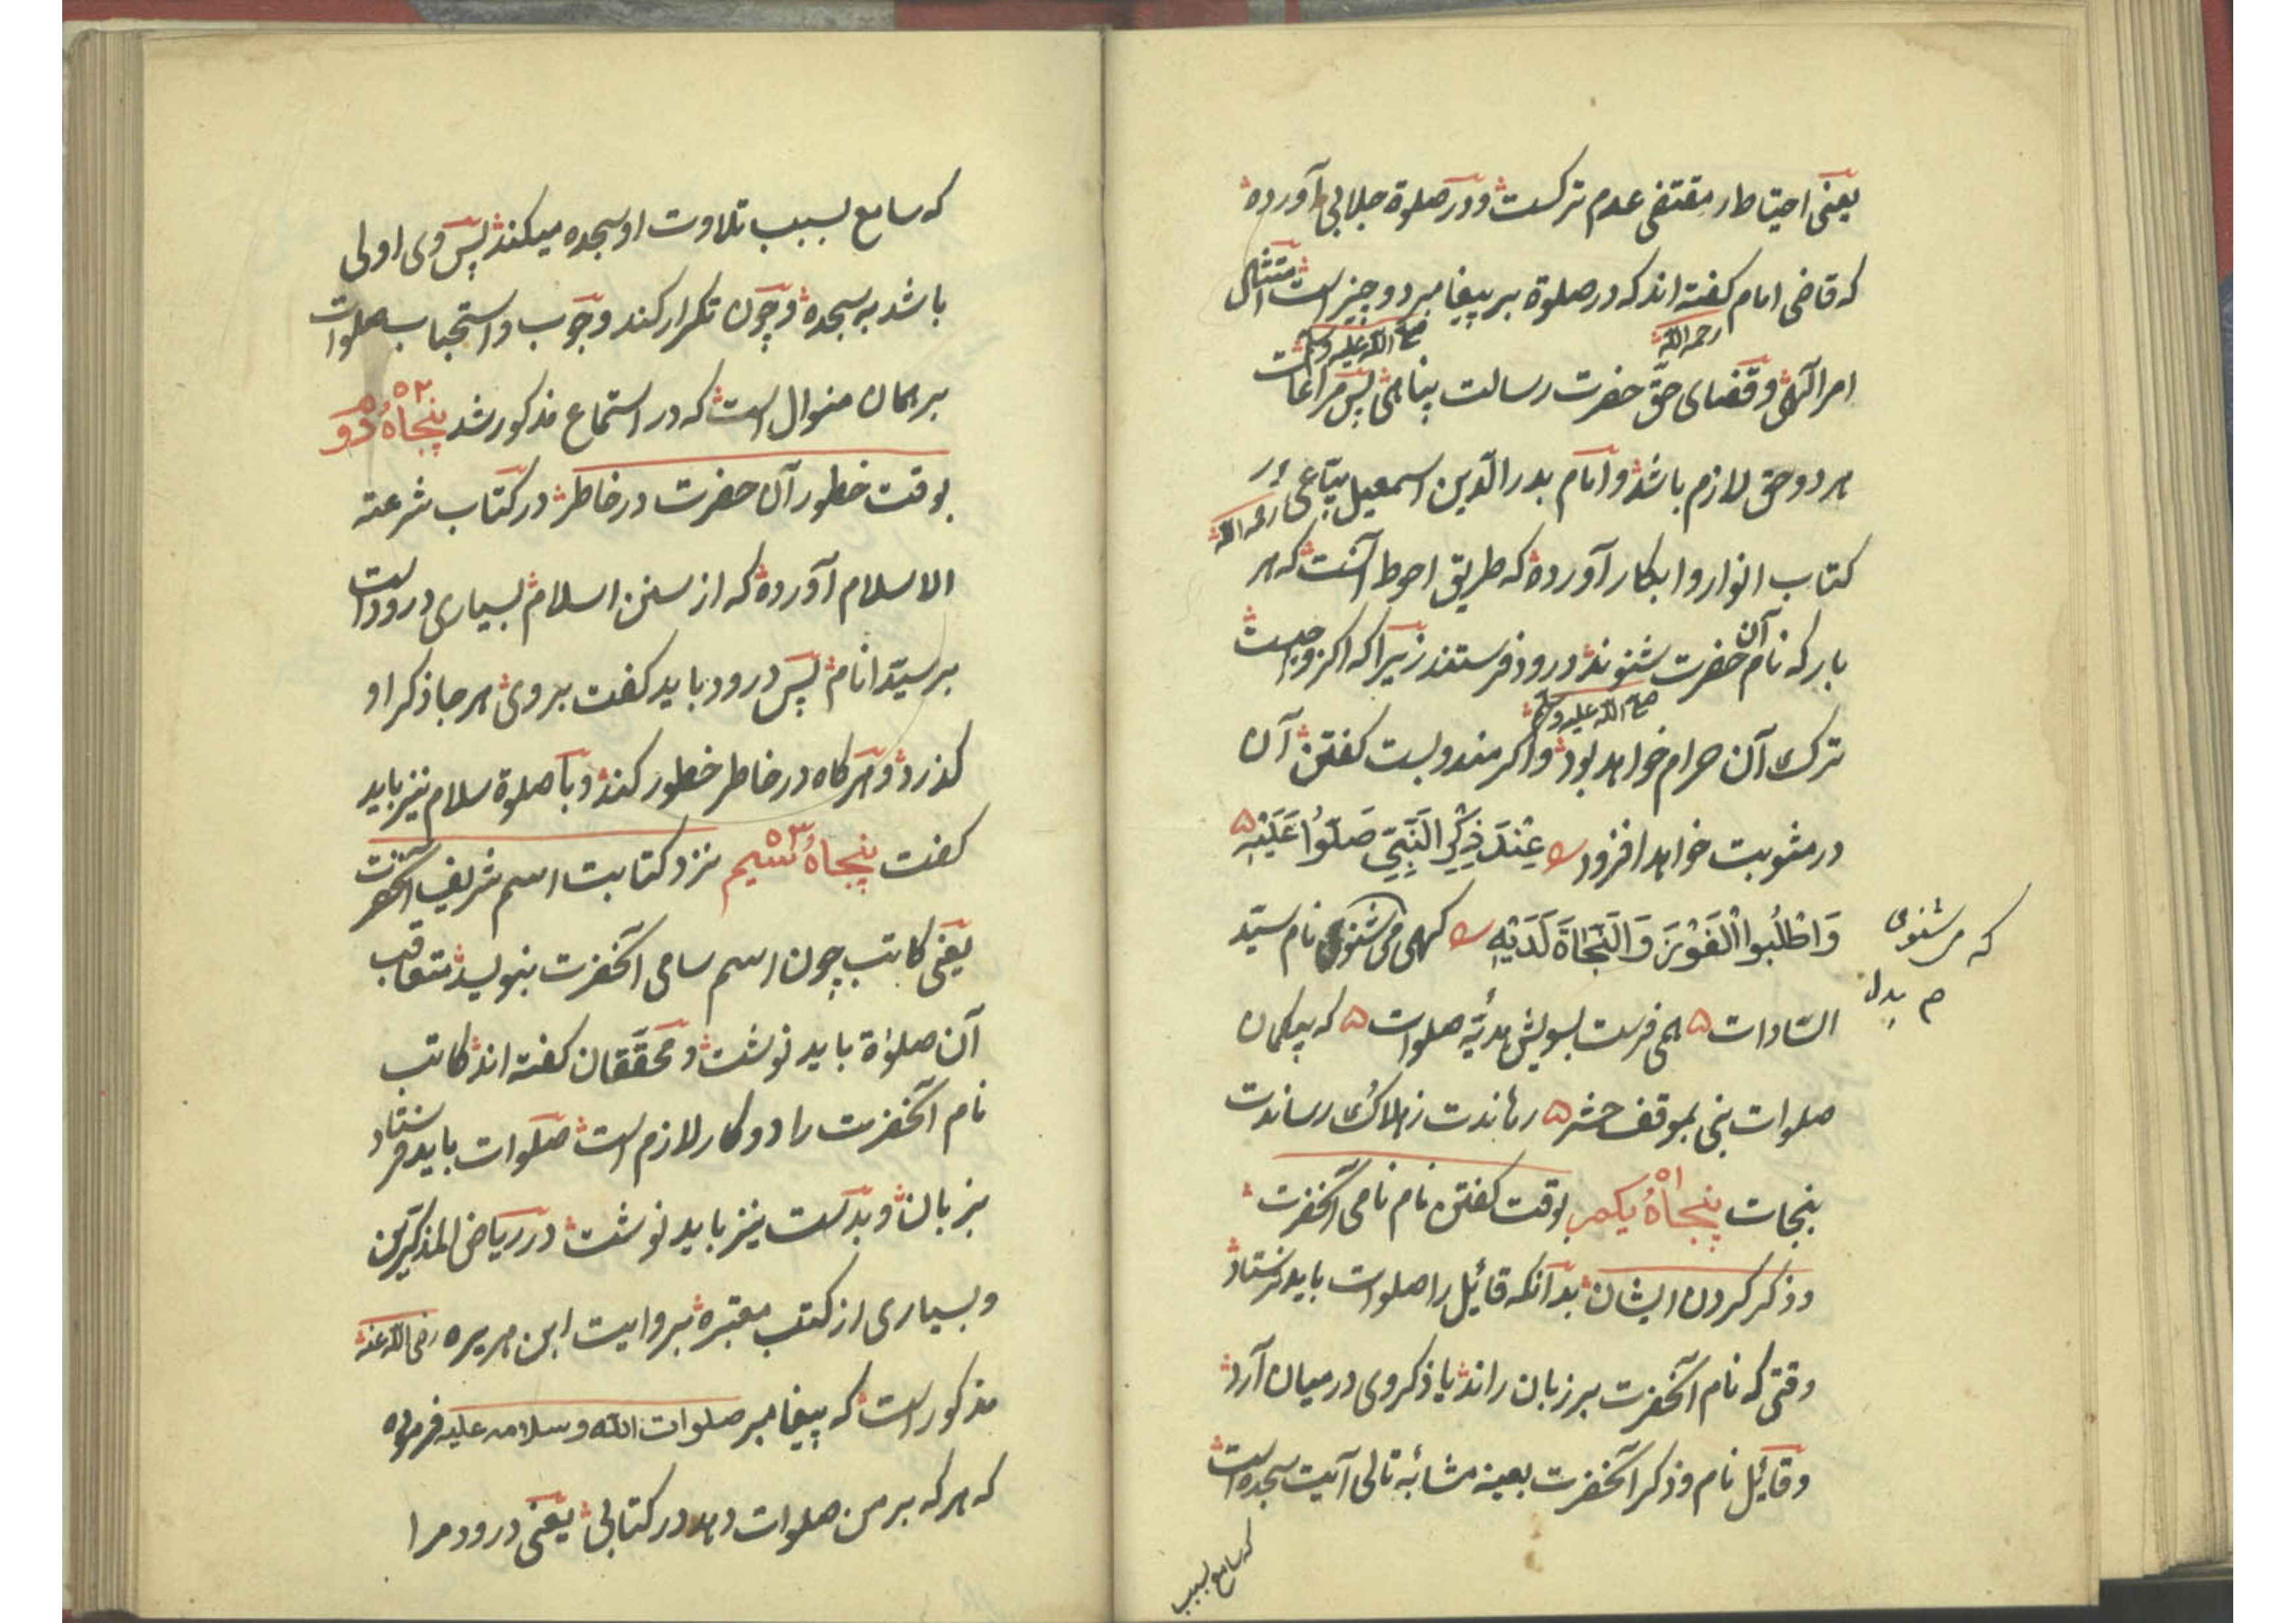 یعنی احتیاط را مقتضی عدم ترکست و در صلوة جلالی آورده
که قاضی امام کفته اند که در صلوة بر پیغامبر دو چیز است امتثال
رحمه الله
صلی الله علیه وسلم
امر الهی و قضای حق حضرت رسالت پناهی پس مراعات
هر دو حق لازم باشد و امام بدر الدین اسمعیل بیّاعی در
رحمه الله
کتاب انوار و ابکار آورده که طریق احوط آنست که هر
بار که نام آن حضرت شنوند درود فرستند زیرا که اکر واجبست
صلی الله علیه وسلم
ترک آن حرام خواهد بود و اکر مندوبست کفتن آن
در مثوبت خواهد افزود عِنْدَ ذِکْرِ النَّبِیِّ صَلُّوا عَلَیْهِ
وَاطْلُبُوا الْفَوْزَ وَالنَّجَاةَ لَدَیْهِ کهی می شنوی نام سیّد
که می شنوی
م بدل
السّادات همی فرست بسویش هدیّه صلوات که بیکمان
صلوات نبی بموقف حشر رهاندت ز هلاک و رساندت
بنجات پنجاهُ یکم ۵۱ بوقت کفتن نام نامی آنحضرت
و ذکر کردن ایشان بدآنکه قائیل را صلوات باید فرستاد
وقتی که نام آنحضرت بر زبان راند یا ذکر وی در میان آرد
و قائیل نام و ذکر آنحضرت بعینه مشابه تالی آیت سجده است
که سامع بسبب
که سامع بسبب تلاوت او سجده میکند پس وی اولی
باشد به سجده و چون تکرار کند وجوب و استحباب صلوات
بر همان منوال است که در استماع مذکور شد پنجاهُ دو ۵۲
بوقت خطور آن حضرت در خاطر در کتاب شرعة
الاسلام آورده که از سنن اسلام بسیاری درود است
بر سیّد انام پس درود باید کفت بر وی هر جا ذکر او
کذرد و هر کاه در خاطر خطور کند و با صلوة سلام نیز باید
کفت پنجاهُ سیم ۵۳ نزد کتابت اسم شریف آنحضرت
یعنی کاتب چون اسم سامی آنحضرت بنویسد متعاقب
آن صلوٰة باید نوشت و محقّقان کفته اند کاتب
نام آنحضرت را دو کار لازم است صلوات باید فرستاد
بزبان و بدست نیز باید نوشت در ریاض المذکّرین
و بسیاری از کتب معتبره بروایت ابن هریره رضی الله عنه
مذکور است که پیغامبر صلوات الله وسلامه علیه فرموده
که هر که بر من صلوات دهد در کتابی یعنی درود مرا